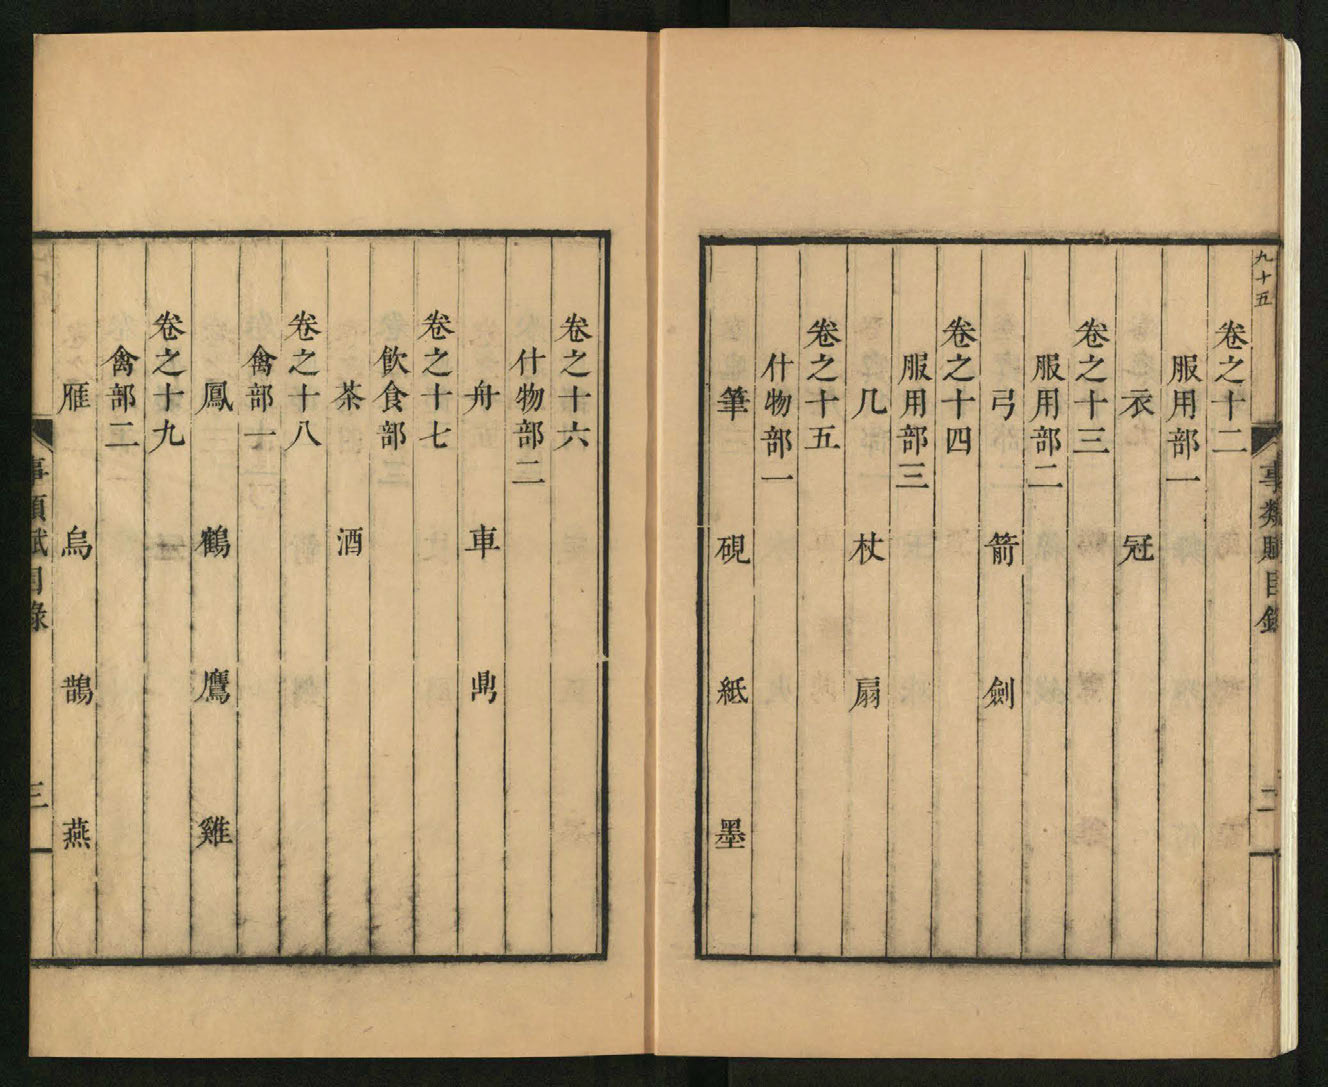 九十五
卷之十二
服用部一
衣 冠
卷之十三
服用部二
弓 箭 劍
卷之十四
服用部三
几 杖 扇
卷之十五
什物部一
筆 硯 紙 墨
事類賦目錄
二
卷之十六
什物部二
舟 車 鼎
卷之十七
飲食部
茶 酒
卷之十八
禽部一
鳳 鶴 鷹 雞
卷之十九
禽部二
雁 烏 鵲 燕
事類賦目錄
三